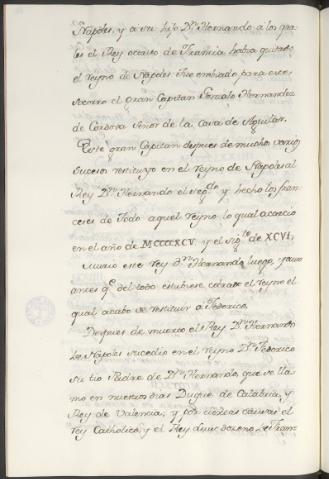 Napoles, y a su hijo Dn. Hernando, a los qua-
les el Rey octavo de Francia habia quitado
el Reyno de Napoles fue embiado para este
socorro el gran Capitan Gonzalo Hernandez
de Cordova Señor de la Casa de Aguilar.
Este gran Capitan despues de muchos varios
sucesos restituyo en el Reyno de Napoles al
Rey Dn. Hernando el segdo. y hecho los fran-
ceses de todo aquel Reyno lo qual acaecio
en el año de MCCCCXCV. y el sigte. de XCVI.
Murio este Rey Dn. Hernando luego, y aun
antes qe. del todo estubiese el Reyno el
qual acabo de restituir a Federico.
Despues de muerto el Rey Dn. Hernando
de Napoles sucedio en el Reyno Dn. Federico
su tio Padre de Dn. Hernando, que se lla-
mo en nuestros dias Duque de Calabria, y
Rey de Valencia, y por ciertas causas el
Rey Catholico, y el Rey Luis doceno de Fran-